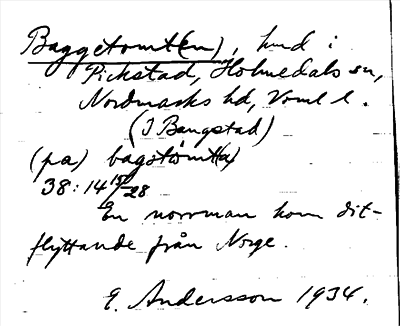 Baggetomt(en), hmd i
Pickstad, Holmedals sn,
Nordmarks hd, Vrml l.
(I Bangstad)
(pa) bagetomt(a)
38:14 15/28
En norrman kom dit-
flyttande från Norge.
E. Andersson 1934.